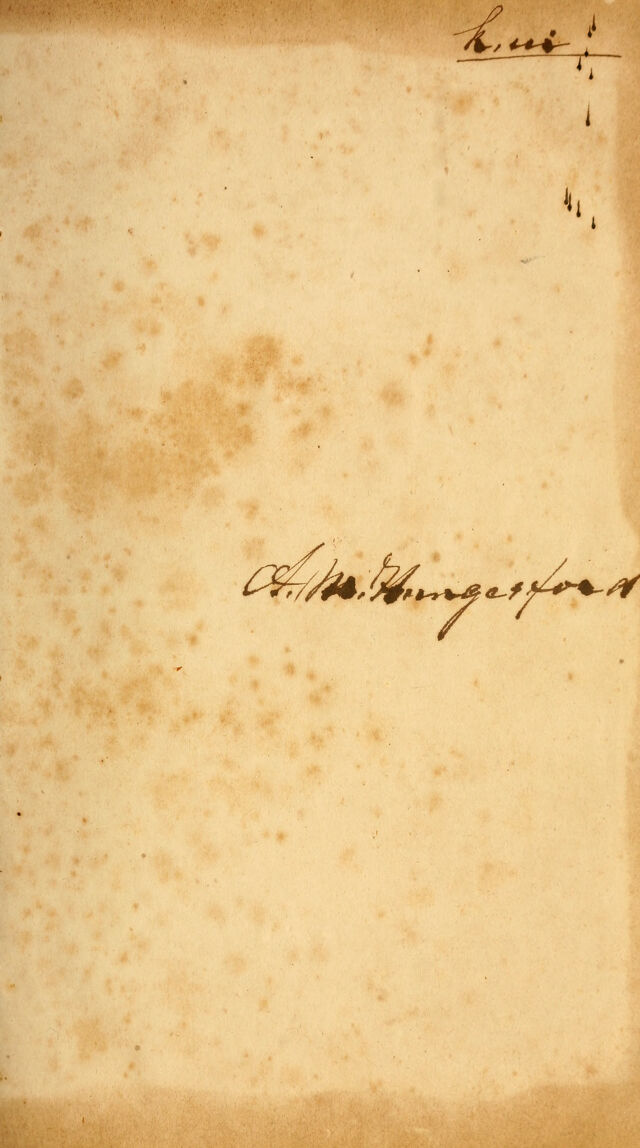 k.iii
A. M. Hungerford